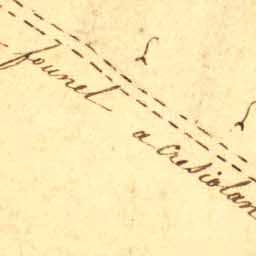 founel a cresiolan